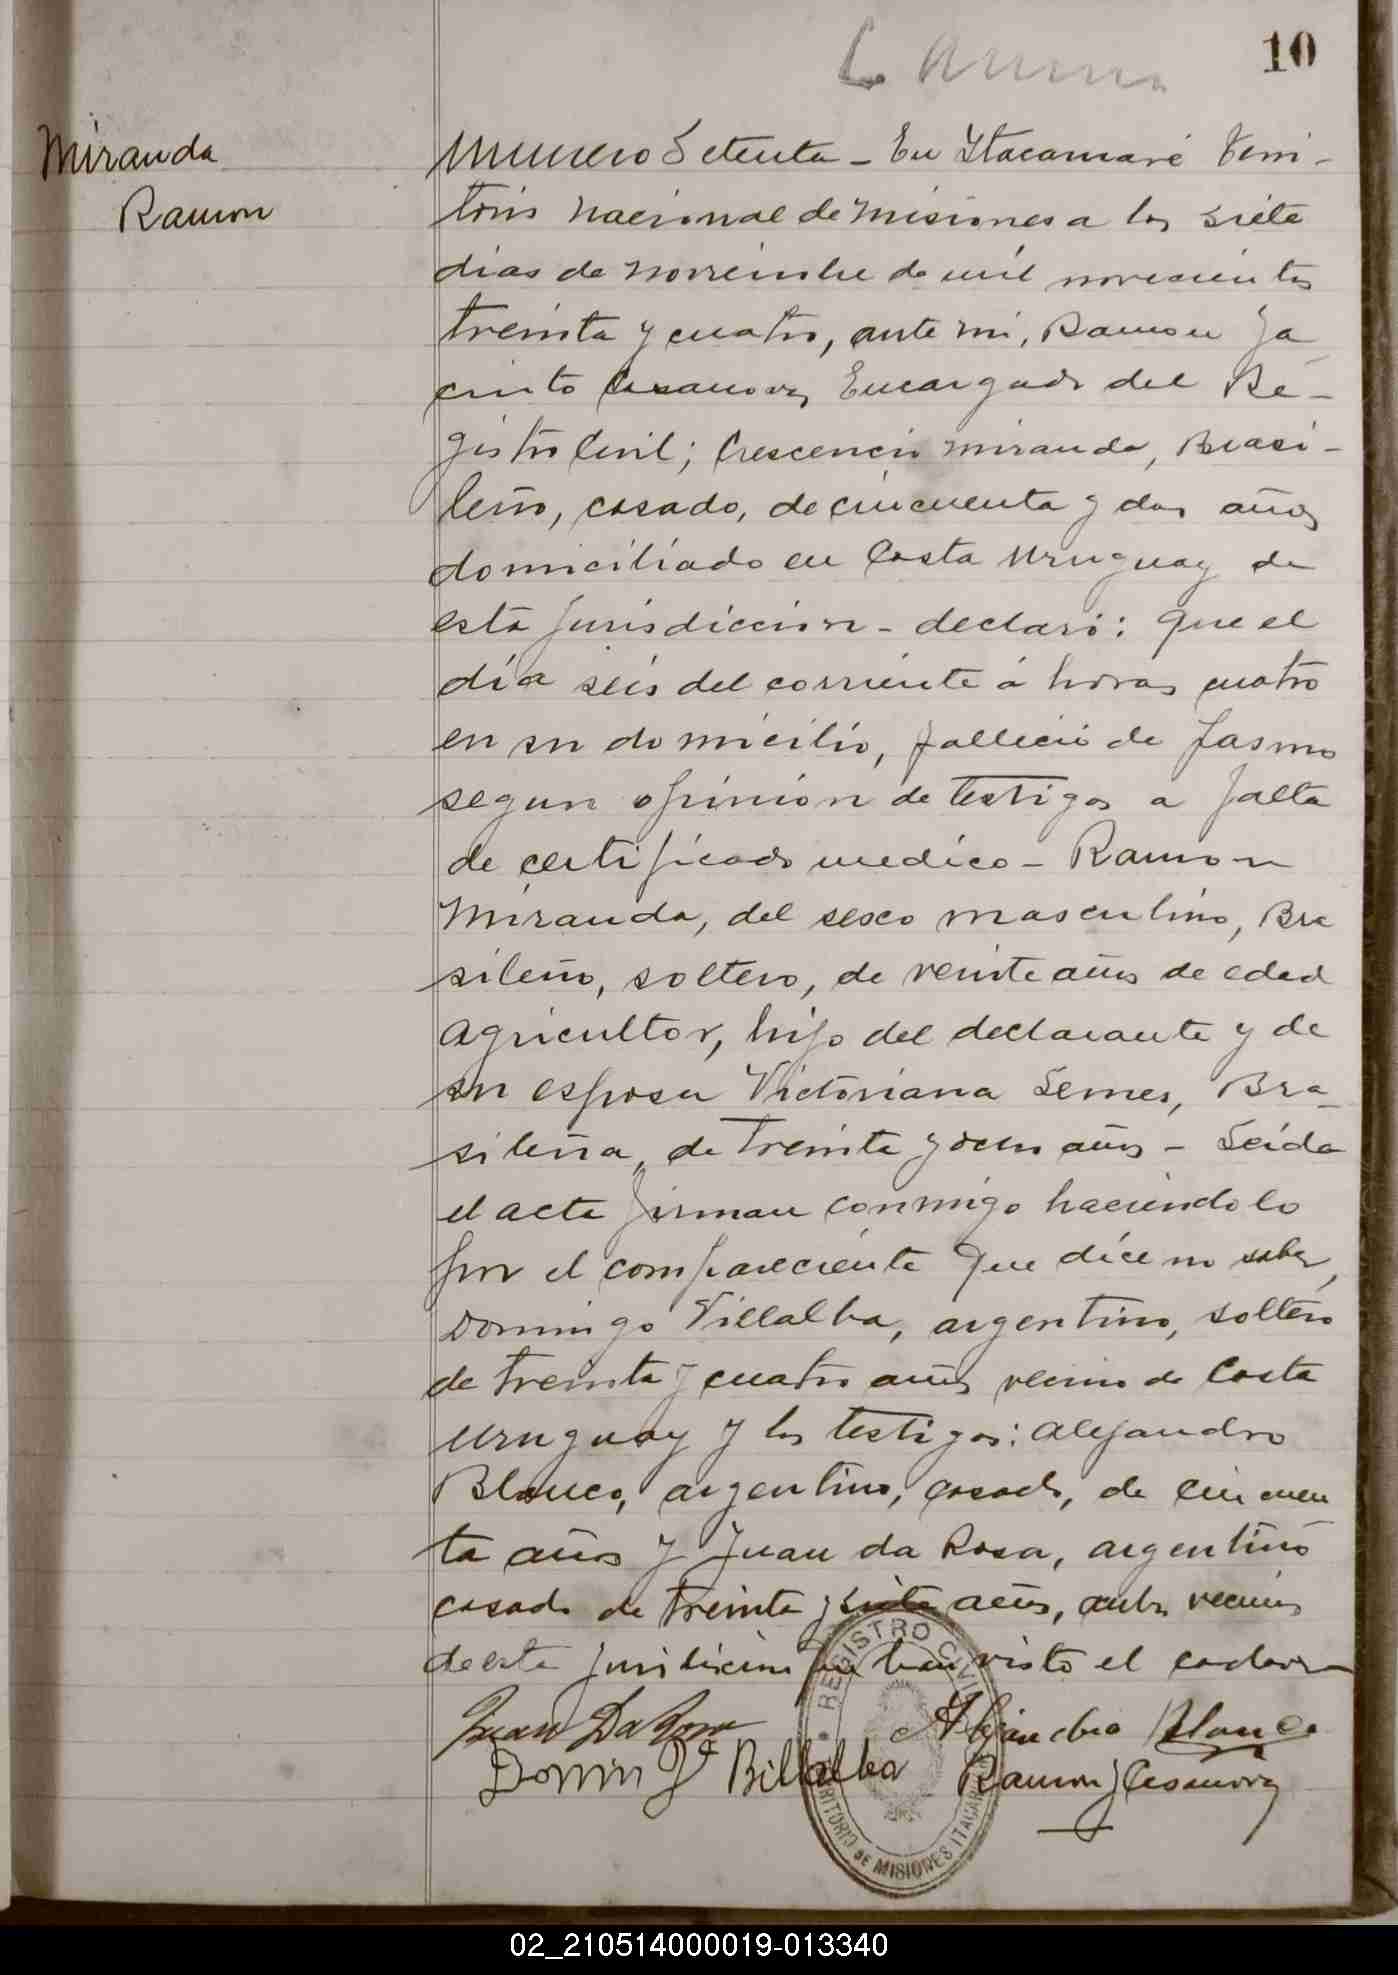 10
Miranda
Ramon
Numero Setenta - En Itacaruaré Terri-
torio Nacional de Misiones a los siete
dias de Noviembre de mil novecientos
treinta y cuatro, ante mi, Ramon Ja
cinto Casanova, Encargado del Re-
gistro Civil; Crescencio Miranda, Brasi-
leño, casado, de cincuenta y dos años
domiciliado en Costa Uruguay de
esta jurisdiccion - declaró: que el
día seis del corriente á horas cuatro
en su domicilio, falleció de Pasmo
segun opinion de testigos a falta
de certificado medico - Ramon
Miranda, del sexo masculino, Bra
sileño, soltero, de veinte años de edad
agricultor, hijo del declarante y de
su esposa Victoriana Lemes, Bra-
sileña, de treinta y ocho años - Leída
el acta firman conmigo haciendolo
por el compareciente que dice no saber,
Domingo Villalba, argentino, soltero
de treinta y cuatro años vecino de Costa
Uruguay y los testigos: Alejandro
Blanco, argentino, casado, de cincuen
ta años y Juan da Rosa, argentino
casado de treinta y siete años, ambos vecinos
de esta jurisdicion que han visto el cadaver
Juan Da Rosa
Alejandro Blanco
Domingo Billalba
Ramon J Casanova
REGISTRO CIVIL
TERRITORIO DE MISIONES ITACARUARE
02_210514000019-013340